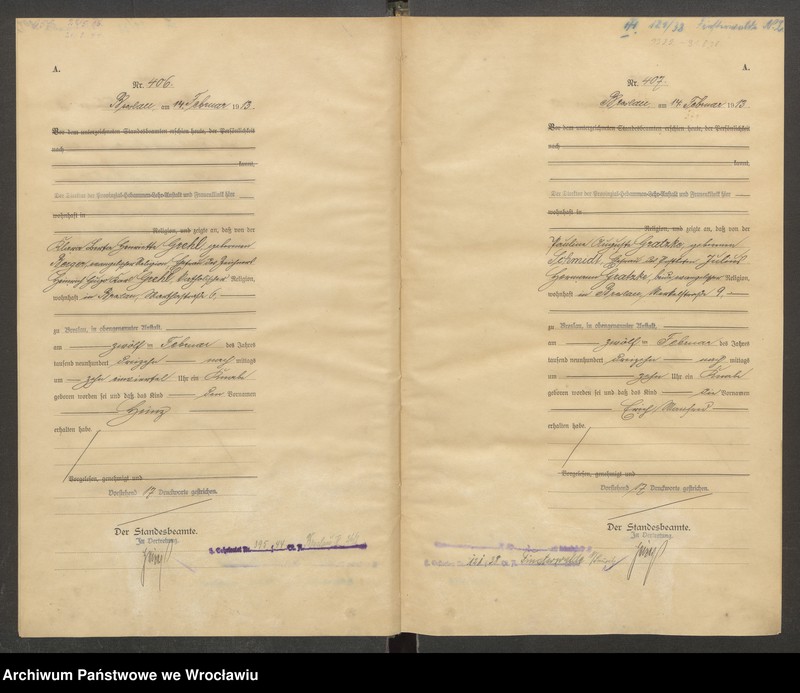 A.
Nr. 406.
Breslau, am 14. Februar 1913.
Vor dem unterzeichneten Standesbeamten erschien heute, der Persönlichkeit
nach
kannt,
Der Direktor der Provinzial-Hebammen-Lehr-Anstalt und Frauenklinik hier
wohnhaft in
Religion, und zeigte an, daß von der
Klara Henriette Grehl geborenen
evangelischer Religion, Ehefrau des
Heinrich Hugo Grehl, katholischer Religion,
wohnhaft in Breslau, 6,
zu Breslau, in obengenannter Anstalt,
am zwölften Februar des Jahres
tausend neunhundert dreizehn nach mittags
um zehn einviertel Uhr ein Knabe
geboren worden sei und daß das Kind den Vornamen
Heinz
erhalten habe.
Vorgelesen, genehmigt und
Vorstehend 17 Druckworte gestrichen.
Der Standesbeamte.
In Vertretung.
A.
Nr. 407.
Breslau, am 14. Februar 1913
Vor dem unterzeichneten Standesbeamten erschien heute, der Persönlichkeit
nach
kannt,
Der Direktor der Provinzial-Hebammen-Lehr-Anstalt und Frauenklinik hier
wohnhaft in
Religion, und zeigte an, daß von der
Pauline Auguste Gratzke, geborenen
Schmidt, Ehefrau des Julius
Hermann Gratzke, beide evangelischer Religion,
wohnhaft in Breslau, 9,
zu Breslau, in obengenannter Anstalt,
am zwölften Februar des Jahres
tausend neunhundert dreizehn nach mittags
um zehn Uhr ein Knabe
geboren worden sei und daß das Kind den Vornamen
Erich Manfred
erhalten habe.
Vorgelesen, genehmigt und
Vorstehend 17 Druckworte gestrichen.
Der Standesbeamte.
In Vertretung.
Archiwum Państwowe we Wrocławiu